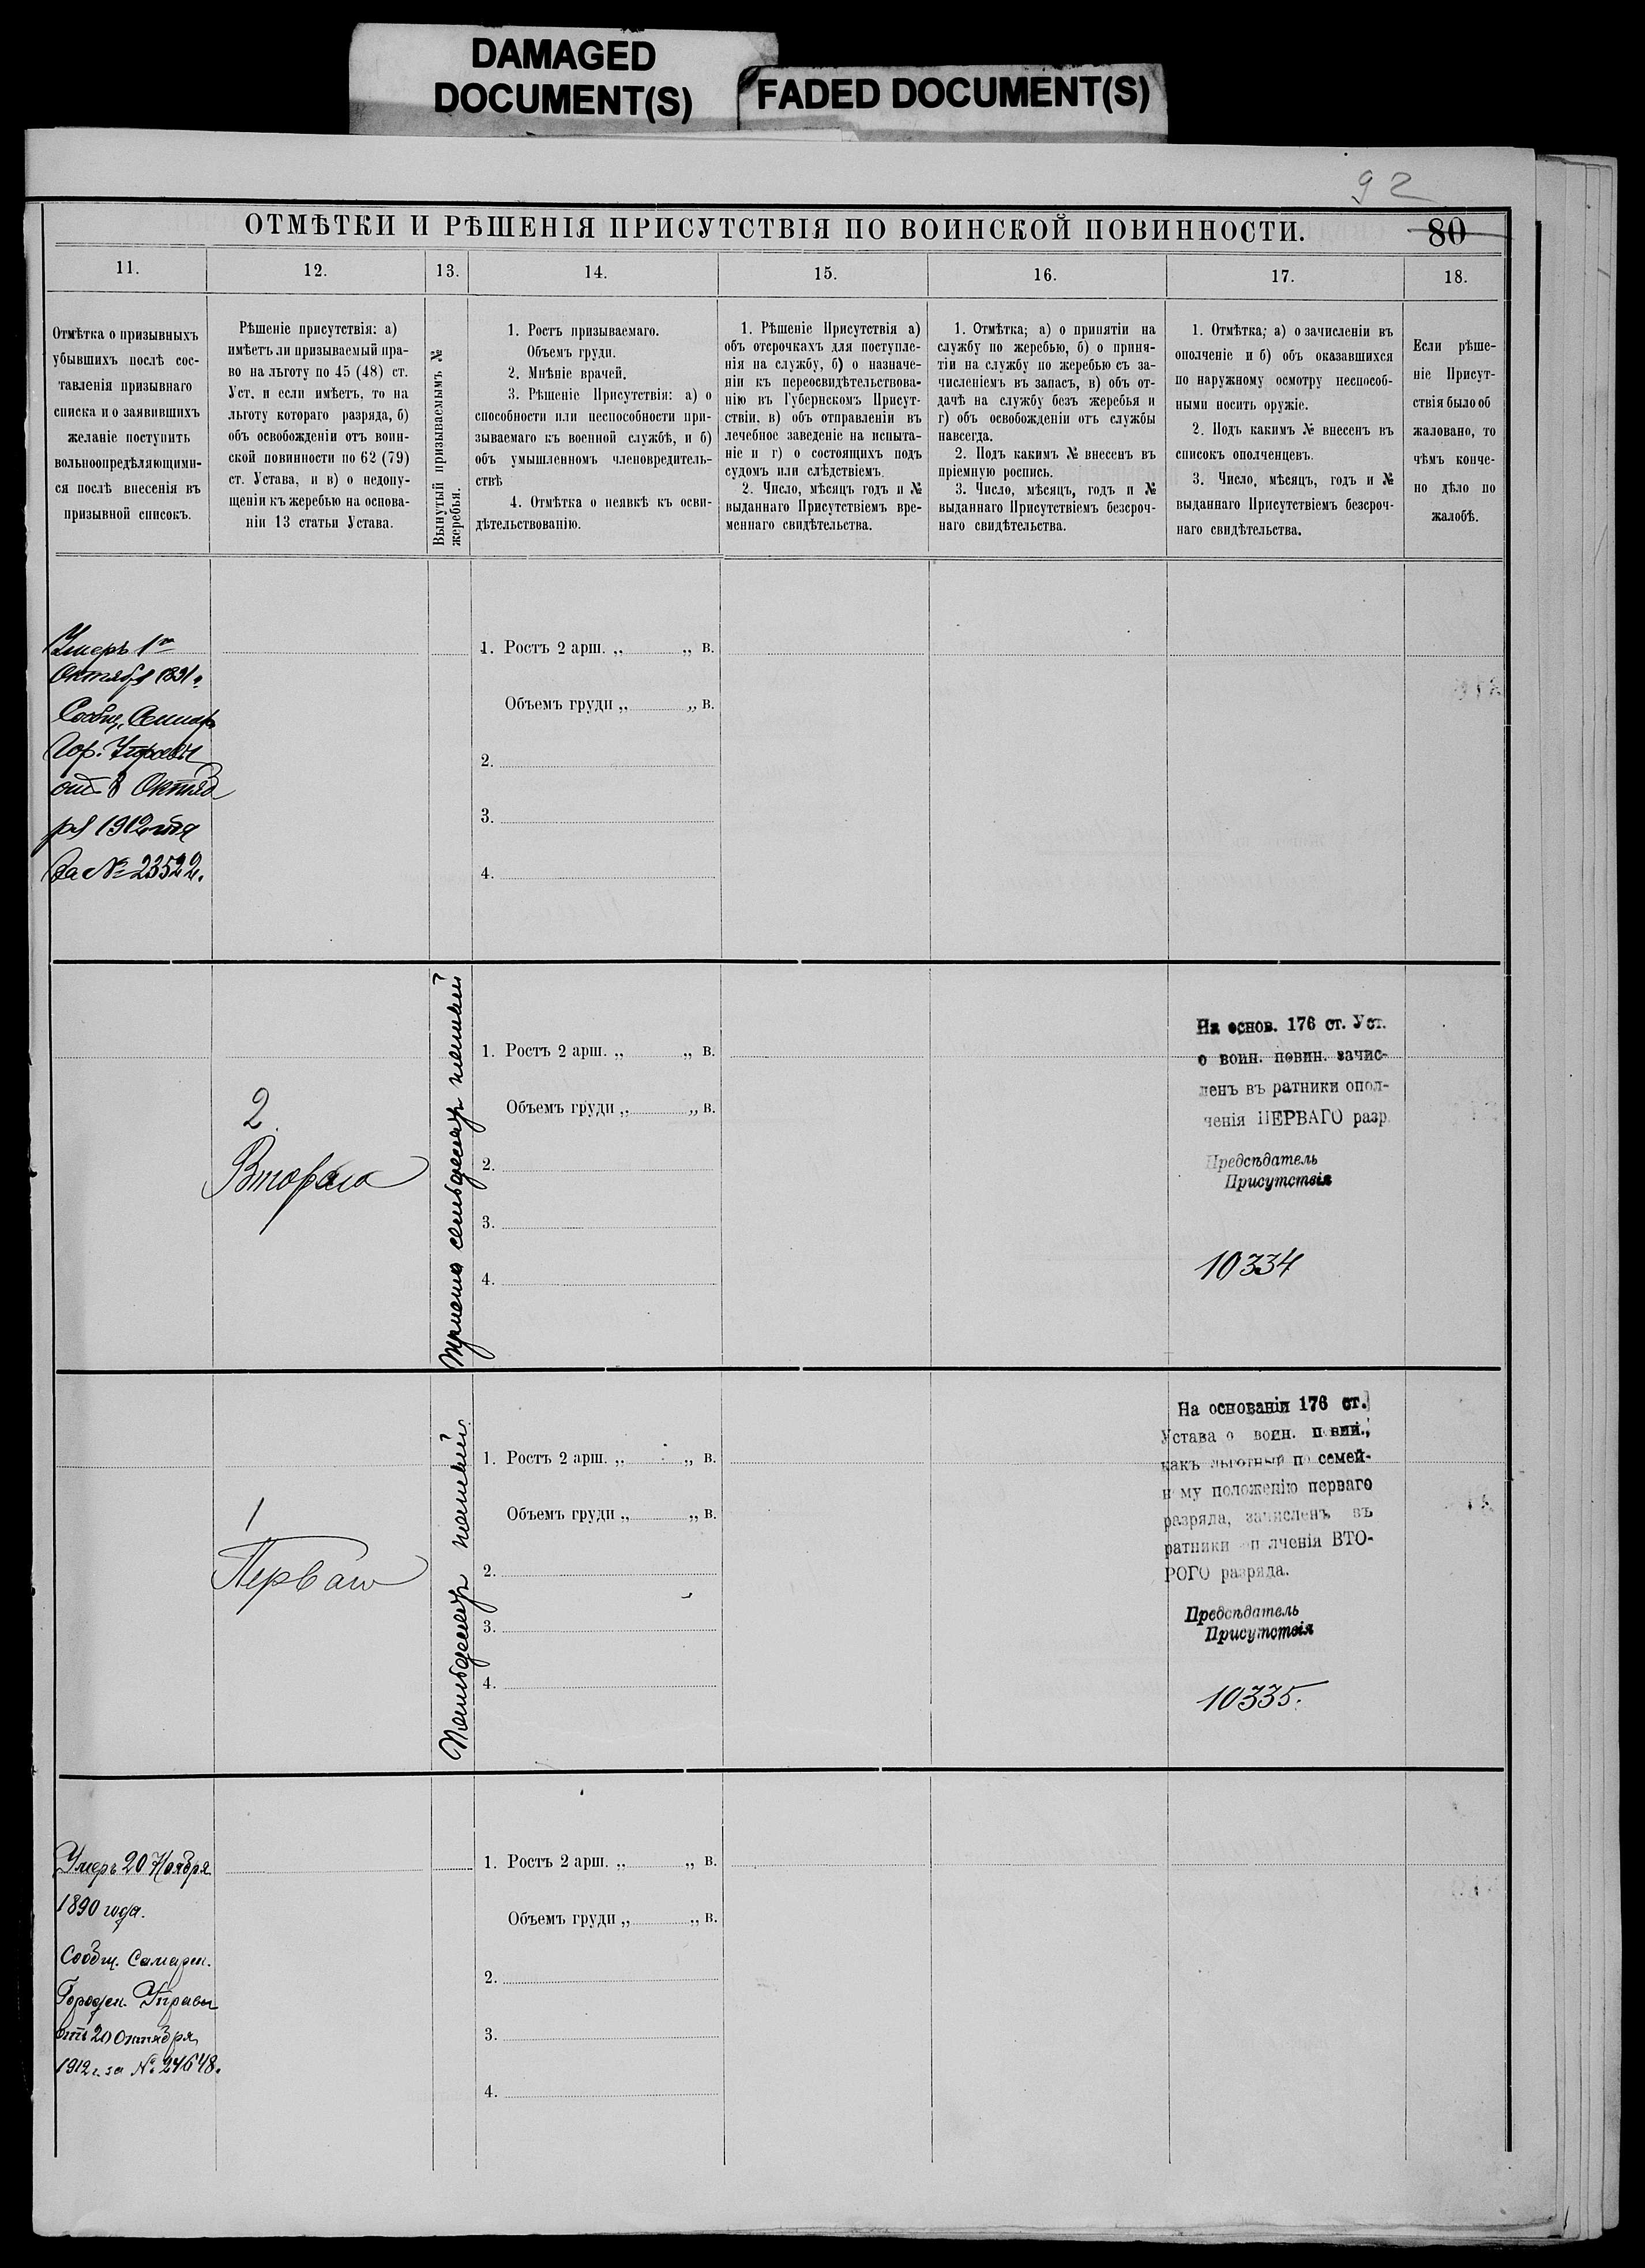 DAMAGED
DOCUMENT(S)
FADED DOCUMENT(S)
92
ОТМѢТКИ И РѢШЕНІЯ ПРИСУТСТВІЯ ПО ВОИНСКОЙ ПОВИННОСТИ.
80
11.
12.
13.
14.
15.
16.
17.
18.
Отмѣтка о призывныхъ
убывшихъ послѣ сос-
тавленія призывнаго
списка и о заявившихъ
желаніе поступить
вольноопредѣляющими-
ся послѣ внесенія въ
призывной списокъ.
Рѣшеніе присутствія: а)
имѣетъ ли призываемый пра-
во на льготу по 45 (48) ст.
Уст. и если имѣетъ, то на
льготу котораго разряда, б)
объ освобожденіи отъ воин-
ской повинности по 62 (79)
ст. Устава, и в) о недопу-
щеніи къ жеребью на основа-
ніи 13 статьи Устава.
Вынутый призываемымъ №
жеребья.
1. Ростъ призываемаго.
Объемъ груди.
2. Мнѣніе врачей.
3. Рѣшеніе Присутствія: а) о
способности или неспособности при-
зываемаго къ военной службѣ, и б)
объ умышленномъ членовредитель-
ствѣ
4. Отмѣтка о неявкѣ къ осви-
дѣтельствованію.
1. Рѣшеніе Присутствія а)
объ отсрочкахъ для поступле-
нія на службу, б) о назначе-
ніи къ переосвидѣтельствова-
нію въ Губернскомъ Присут-
ствіи, в) объ отправленіи въ
лечебное заведеніе на испыта-
ніе и г) о состоящихъ подъ
судомъ или слѣдствіемъ.
2. Число, мѣсяцъ годъ и №
выданнаго Присутствіемъ вре-
меннаго свидѣтельства.
1. Отмѣтка; а) о принятіи на
службу по жеребью, б) о приня-
тіи на службу по жеребью съ за-
численіемъ въ запасъ, в) объ от-
дачѣ на службу безъ жеребья и
г) объ освобожденіи отъ службы
навсегда.
2. Подъ какимъ № внесенъ въ
пріемную роспись.
3. Число, мѣсяцъ, годъ и №
выданнаго Присутствіемъ безсроч-
наго свидѣтельства.
1. Отмѣтка; а) о зачисленіи въ
ополченіе и б) объ оказавшихся
по наружному осмотру неспособ-
ными носить оружіе.
2. Подъ какимъ № внесенъ въ
списокъ ополченцевъ.
3. Число, мѣсяцъ, годъ и №
выданнаго Присутствіемъ безсроч-
наго свидѣтельства.
Если рѣше-
ніе Присут-
ствія было об
жаловано, то
чѣмъ конче-
но дѣло по
жалобѣ.
Умеръ 1го
Октября 1891 г.
Сообщ. Самар
Гор. Управы
отъ 8 Октяб
ря 1912 года
За № 23522.
1. Ростъ 2 арш. „ „ в.
Объемъ груди „ „ в.
2.
3.
4.
2
Второго
Триста семьдесятъ пятый
1. Ростъ 2 арш. „ „ в.
Объемъ груди „ „ в.
2.
3.
4.
На основ. 176 ст. Уст.
о воин. повин. зачис-
ленъ въ ратники опол-
ченія ПЕРВАГО разр.
Предсѣдатель
Присутствія
10334
1
Перваго
Пятьдесятъ пятый.
1. Ростъ 2 арш. „ „ в.
Объемъ груди „ „ в.
2.
3.
4.
На основаніи 176 ст.
Устава о воин. п вин.,
какъ льготный п семей-
н му положенію перваго
разряда, зачисленъ въ
ратники оп лченія ВТО-
РОГО разряда.
Предсѣдатель
Присутствія
10335.
Умеръ 20 Ноября
1890 года.
Сообщ. Самарск.
Городск. Управы
отъ 20 Октября
1912 г. за № 24648.
1. Ростъ 2 арш. „ „ в.
Объемъ груди „ „ в.
2.
3.
4.